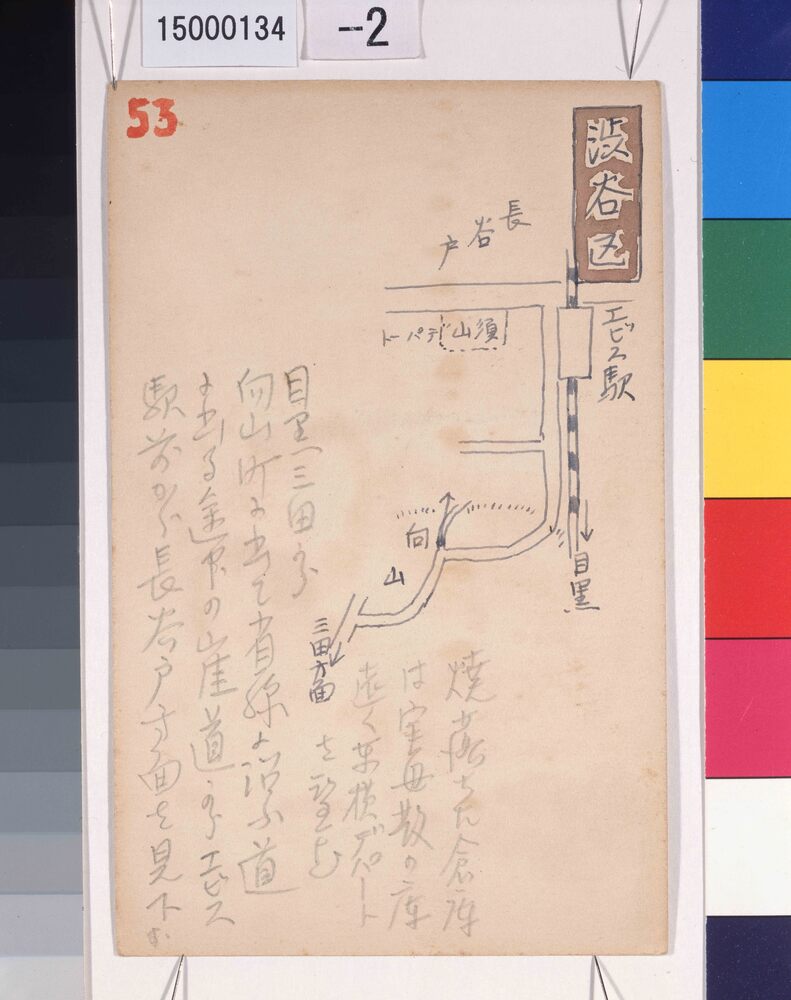 15000134
-2
53
渋谷区
長谷戸
エビス駅
須山デパート
目黒
向山
三田方面
目黒三田から
向山町に出て省線に沿ふ道
に出る途中の崖道からエビス
駅前から長谷戸方面を見下す
焼落ちた倉庫
は宝母散の庫
遠く東横デパート
を望む